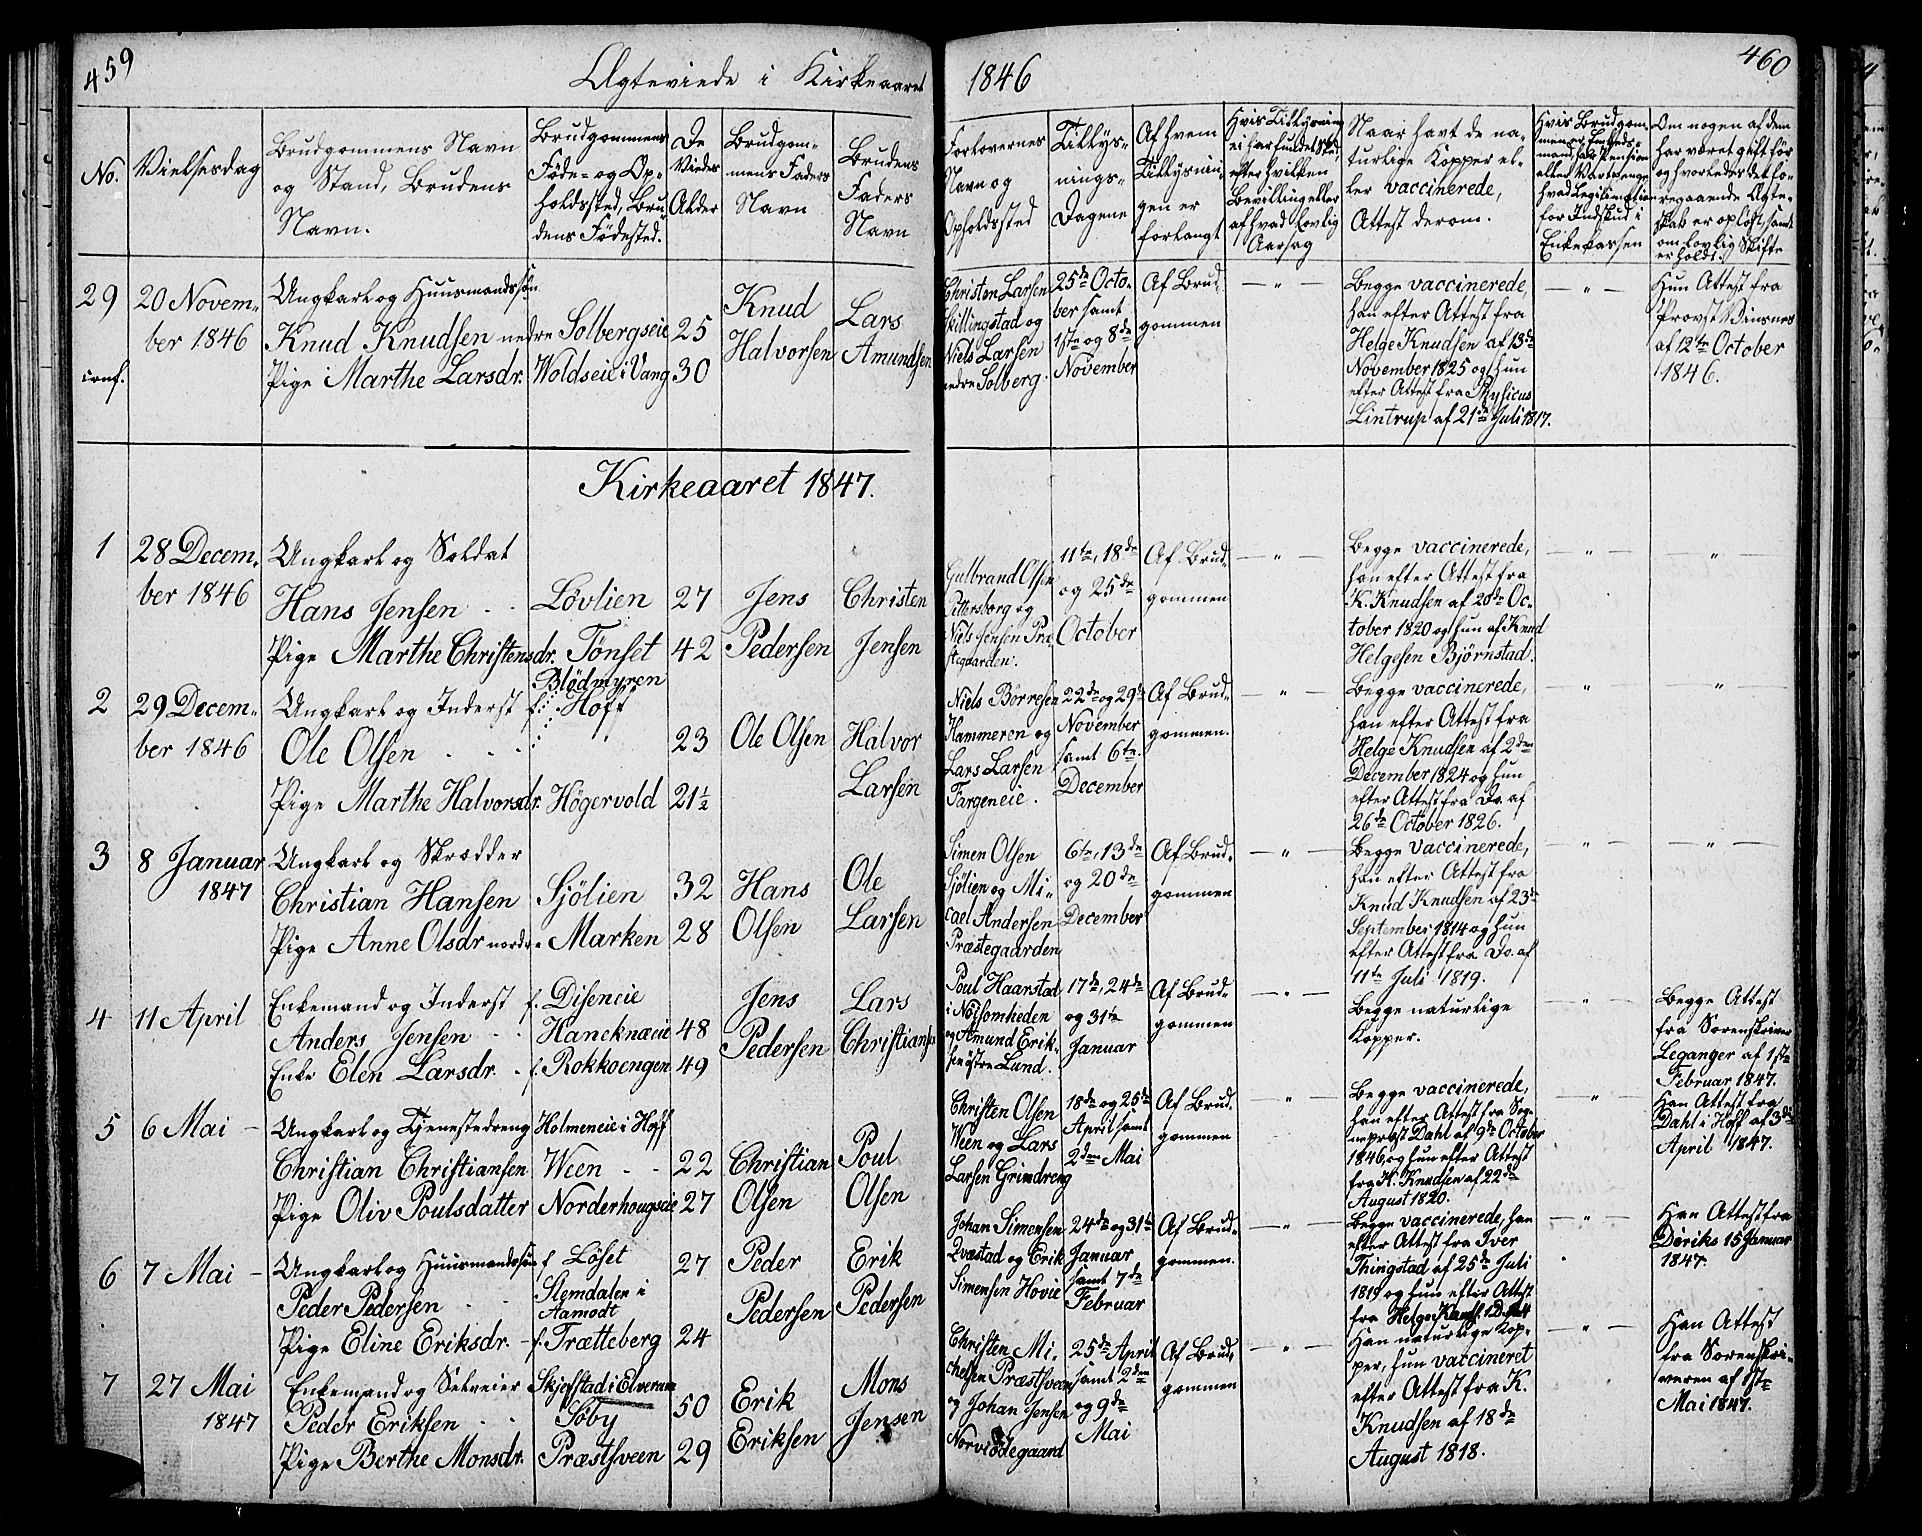 459
Ægteviede i Kirkeaaret
1846
460
No.
Vielsesdag
Brudgommens Navn
og Stand, Brudens
Navn.
Brudgommens
Føde- og Op-
holdssted, Bru-
dens Fødested.
De
Viedes
Alder
Brudgom-
mens Faders
Navn
Brudens
Faders
Navn
Forlovernes
Navn og
Opholdssted
Tillys-
nings-
Dagene
Af hvem
Tillysnin-
gen er
forlangt
Hvis Tillysning
ei har fundet Sted,
efter hvilken
Bevilling eller
af hvad Lovlig
Aarsag
Naar havt de na-
turlige Kopper el-
ler vaccinerede,
Attest derom.
Hvis Brudgom-
men og Embeds-
mand, har Pension
eller Vartpenge
hvad Legitimation
for Indskud i
Enkekassen
Om nogen af dem
har været gift før
og hvorledes det fo-
regaaende Ægte-
skab er opløst, samt
om lovlig Skifte
er holdt.
29
conf.
20 Novem-
ber 1846
Ungkarl og Huusmandssøn
Knud Knudsen
Pige Marthe Larsdr.
nedre Solbergseie
Woldseie i Vang
25
30
Knud
Halvorsen
Lars
Amundsen
Christen Larsen
Skillingstad og
Niels Larsen
nedre Solberg.
25de Octo-
ber samt
1ste og 8de
November
Af Brud-
gommen
— " —
Begge vaccinerede,
han efter Attest fra
Helge Knudsen af 13de
November 1825 og hun
efter Attest fra Physicus
Lintrup af 21de Juli 1817.
— " —
Hun Attest fra
Provst Vinsnes
af 12te October
1846.
Kirkeaaret 1847.
1
28 Decem-
ber 1846
Ungkarl og Soldat
Hans Jensen
Pige Marthe Christensdr.
Løvlien
Tønset
27
42
Jens
Pedersen
Christen
Jensen
Gulbrand Olsen
Pettersborg og
Niels Jensen Præ-
stegaarden.
11te, 18de
og 25de
October
Af Brud-
gommen
— " —
Begge vaccinerede,
han efter Attest fra
K. Knudsen af 20de Oc-
tober 1820 og hun af Knud
Helgesen Bjørnstad.
" —
" —
2
29 Decem-
ber 1846
Ungkarl og Inderst
Ole Olsen
Pige Marthe Halvorsdr.
Blödmyren
f. i Hoff
Högervold
23
21½
Ole Olsen
Halvor
Larsen
Niels Börresen
Hammeren og
Lars Larsen
Fargeneie.
22de og 29de
November
samt 6te
December
Af Brud-
gommen.
— " —
Begge vaccinerede,
han efter Attest fra
Helge Knudsen af 2den
December 1824 og hun
efter Attest fra Do. af
26de October 1826.
" —
"
3
8 Januar
1847
Ungkarl og Skrædder
Christian Hansen
Pige Anne Olsdr
Sjölien
nordre Marken
32
28
Hans
Olsen
Ole
Larsen
Simen Olsen
Sjölien og Mi-
cael Andersen
Præstegaarden
6te, 13de
og 20de
December
Af Brud-
gommen
— " —
Begge vaccinerede,
han efter Attest fra
Knud Knudsen af 23de
September 1814 og hun
efter Attest fra Do. af
11te Juli 1819.
" —
— " —
4
11 April
Enkemand og Inderst
Anders Jensen
Enke Elen Larsdr.
f. Diseneie
Hancknæeie
f. Rokkoengen
48
49
Jens
Pedersen
Lars
Christiansen
Poul Haarstad
i Nöisomheden
og Amund Erik-
sen östre Lund.
17de, 24de
og 31te
Januar
Af Brud-
gommen
— " —
Begge naturlige
Kopper.
— " —
Begge Attest
fra Sorenskriver
Leganger af 1ste
Februar 1847.
5
6 Mai
Ungkarl og Tjenestedreng
Christian Christiansen
Pige Oliv Poulsdatter
Holmeneie i Hoff
Ween
Norderhougseie
22
27
Christian
Olsen
Poul
Olsen
Christen Olsen
Ween og Lars
Larsen Grindreng
18de og 25de
April samt
2den Mai
Af Brud-
gommen
— " —
Begge vaccinerede,
han efter Attest fra Sog-
neprest Dahl af 9de October
1846, og hun efter Attest
fra K. Knudsen af 22de
August 1820.
— " —
Han Attest fra
Dahl i Hoff af 3die
April 1847.
6
7 Mai
Ungkarl og Huusmandssøn
Peder Pedersen
Pige Eline Eriksdr.
f. Löset
Stemdalen i
Aamodt
f. Trætteberg
27
24
Peder
Pedersen
Erik
Pedersen
Johan Simensen
Qvæstad og Erik
Simensen Hovie
24de og 31te
Januar
samt 7de
Februar
Af Brud-
gommen.
— " —
Begge vaccinerede, han
efter Attest fra Iver
Thingstad af 25de Juli
1819 og hun efter Attest
fra Helge
— " —
Han Attest fra
Döriks 15 Januar
1847.
7
27 Mai
1847
Enkemand og Selveier
Peder Eriksen
Pige Berthe Monsdr.
Skjefstad i Elverum
Söby
Præstsveen
50
29
Erik
Eriksen
Mons
Jensen
Christen Mi-
chelsen Præstsveen
og Johan Jensen
Norveödegaard
25de April
samt 2den
og 9de
Mai
Af Brud-
gommen
— " —
Han naturlige Kop-
per, hun vaccineret
efter Attest fra K.
Knudsen af 18de
August 1818.
— " —
Han Attest
fra Sorenskri-
veren af 1ste
Mai 1847.